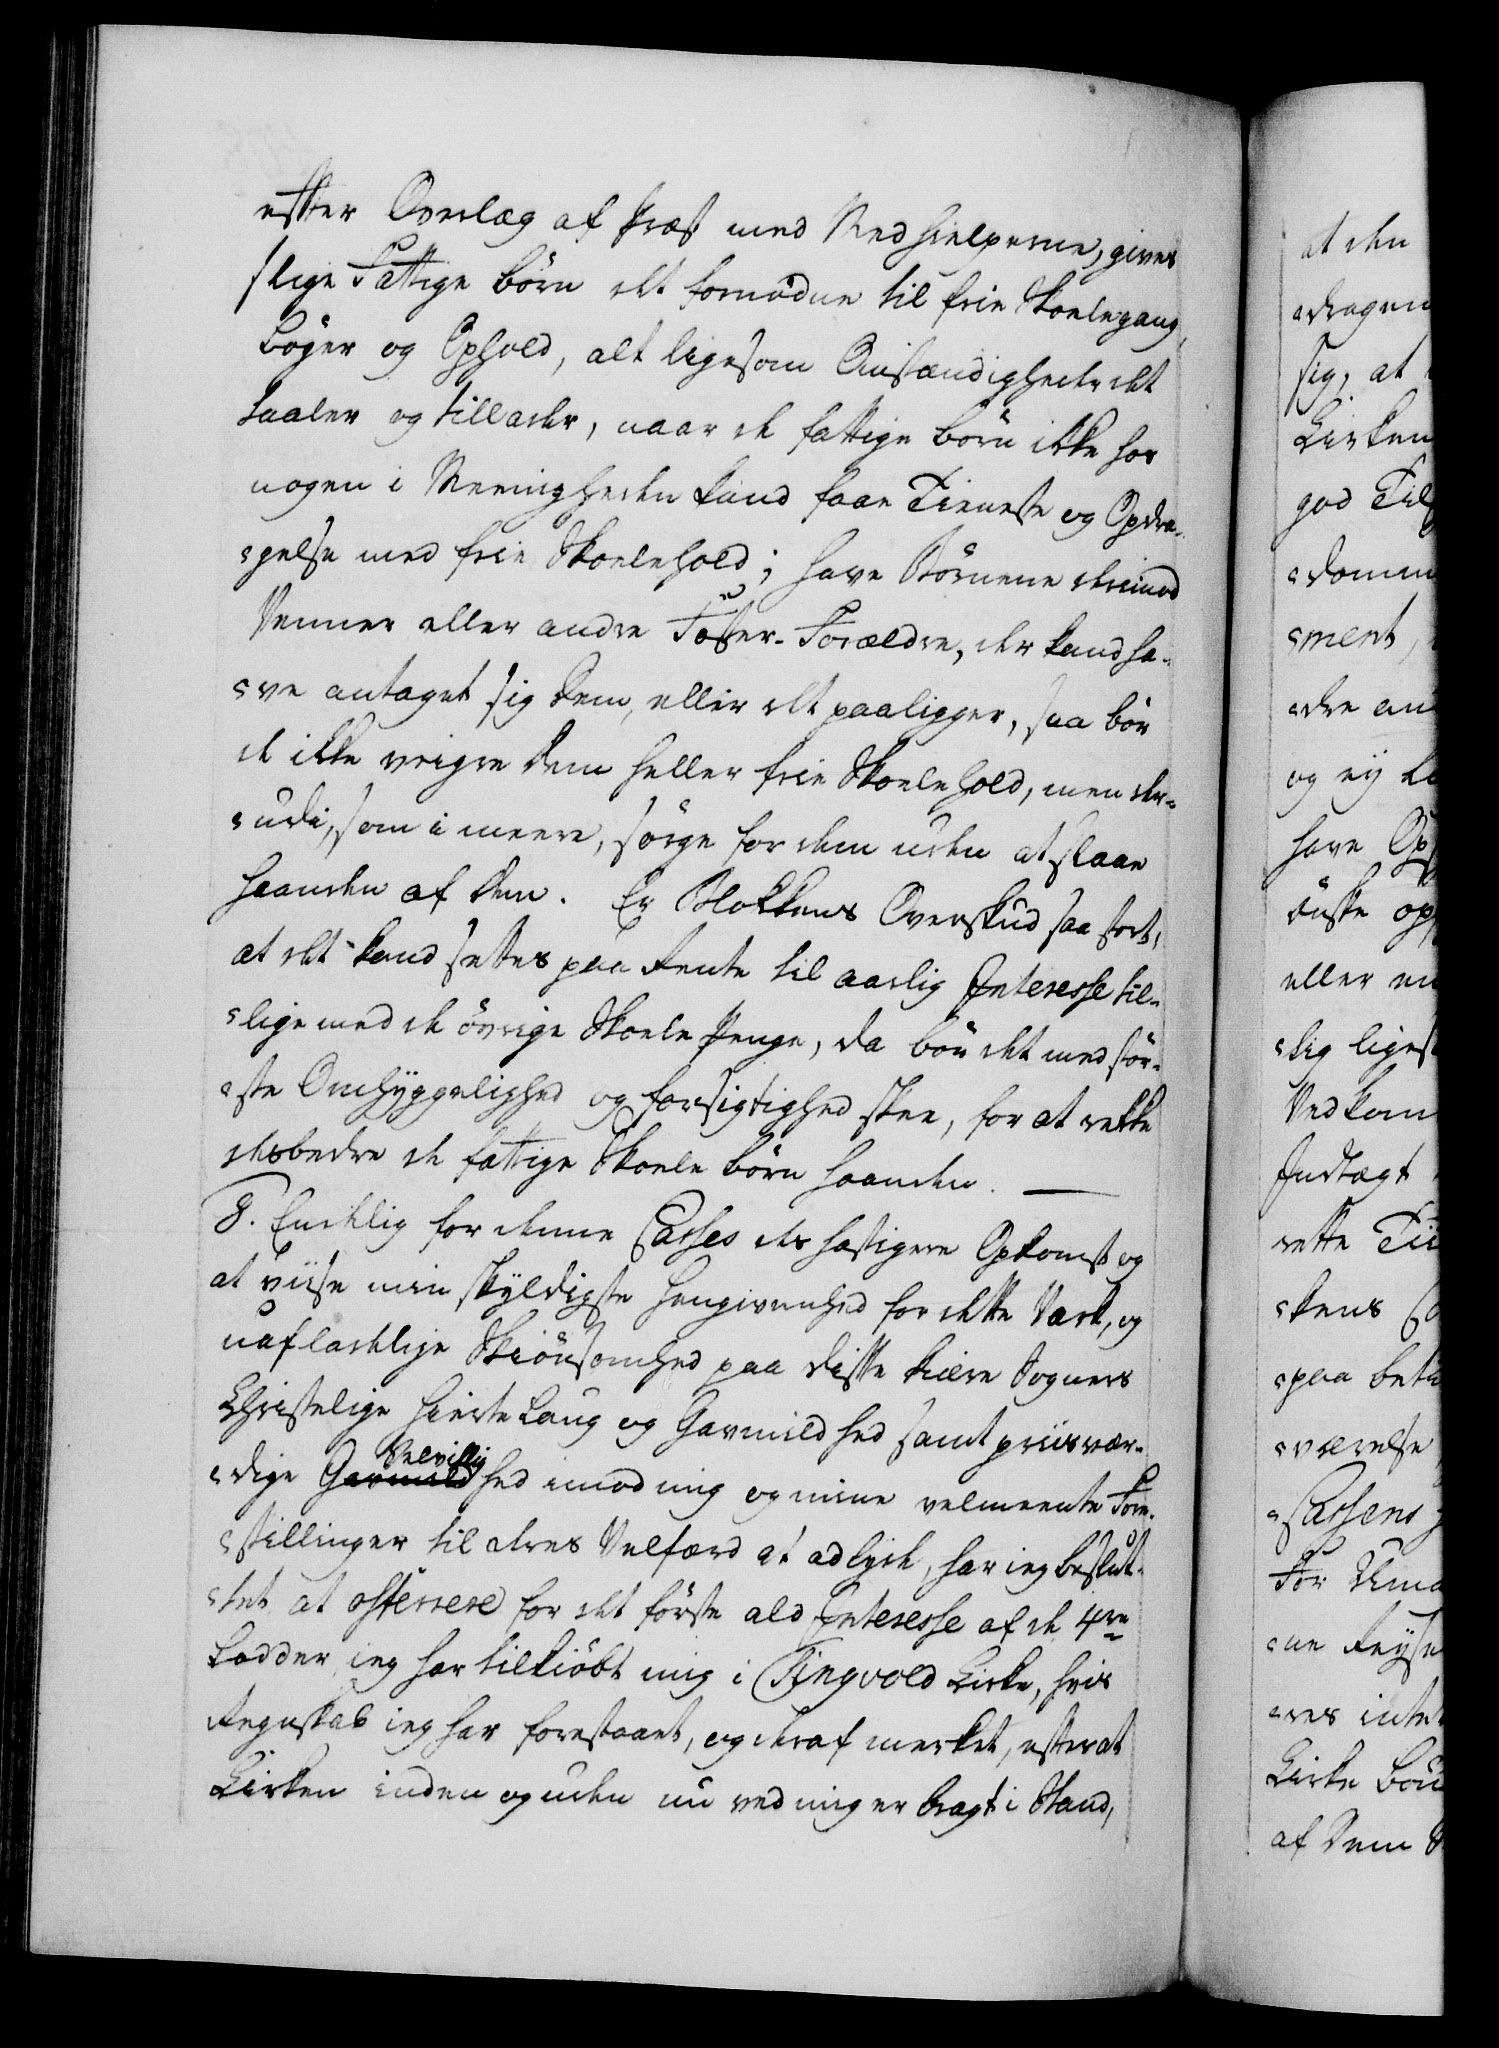 efter Overlæg af Præst med Medhielperne, gives
slige Fattige børn det fornødne til frie Skolegang,
bøger og Ophold, alt ligesom Omstændighederdet
taaler og tillader, naar de fattige børn ikke hos
nogen i Meenigheden kand faae Tieneste og Opdra-
gelse med frie Skoelehold; have Børnene derimod
Venner eller andre Foster-Forældre, der kand ha-
ve antaget sig dem, eller det paaligger, saa bør
de ikke veigre dem heller frie Skoelehold, men der-
udi, som i meere, sørge for dem uden at slaae
haanden af dem. Er Blokkens Overskud saa stort,
at det kand settes paa Rente til aarlig Interesse til-
lige med de øvrige Skoele Penge, da bør det med stør-
ste Omhyggelighed og forsigtighed skee, for at rekke
desbedre de fattige Skoele børn haanden.
8. Endelig for denne Casses des hastigere Opkomst og
at viise min skyldigste hengivenhed for dette Værk, og
uafladelige Skiønsomhed paa disse kiære Sogners
Christelige hierte Laug og Gavmildhed samt priisvær-
dige Gavmild Velvillighed imod mig og mine velmeente Fore-
stillinger til deres Velfærd at adlyde, har ieg beslut-
tet at offerere for det første ald Interesse af de 4re
Lodder ieg har tilkiøbt mig i Tingvold Kirke, hvis
Regnskab ieg har forestaaet, og deraf merket, efterat
Kirken inden og uden nu ved mig er bragt i Stand,
at den
dragen
sig, at
Kirken
god Til
domm
ment,
dre an
og ey
have Op
ønske op
eller en
lig liges
Vedkom
Indtægt
rette Til
kens
paa bet
værelse
Cassens
For
ne Reyse
res inte
Kirke
af dem